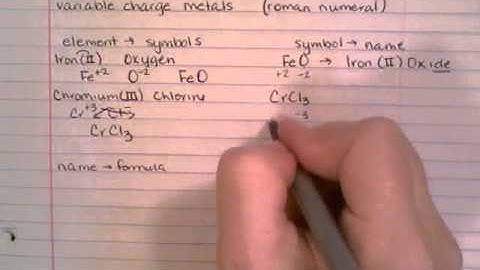 variable charge metals (roman numeral)
element → symbols
Iron(II) Oxygen
Fe+2 O-2 FeO
Chromium(III) Chlorine
Cr+3
CrCl3
name → formula
symbol → name
FeO → Iron (II) Oxide
+2 -2
CrCl3
-3